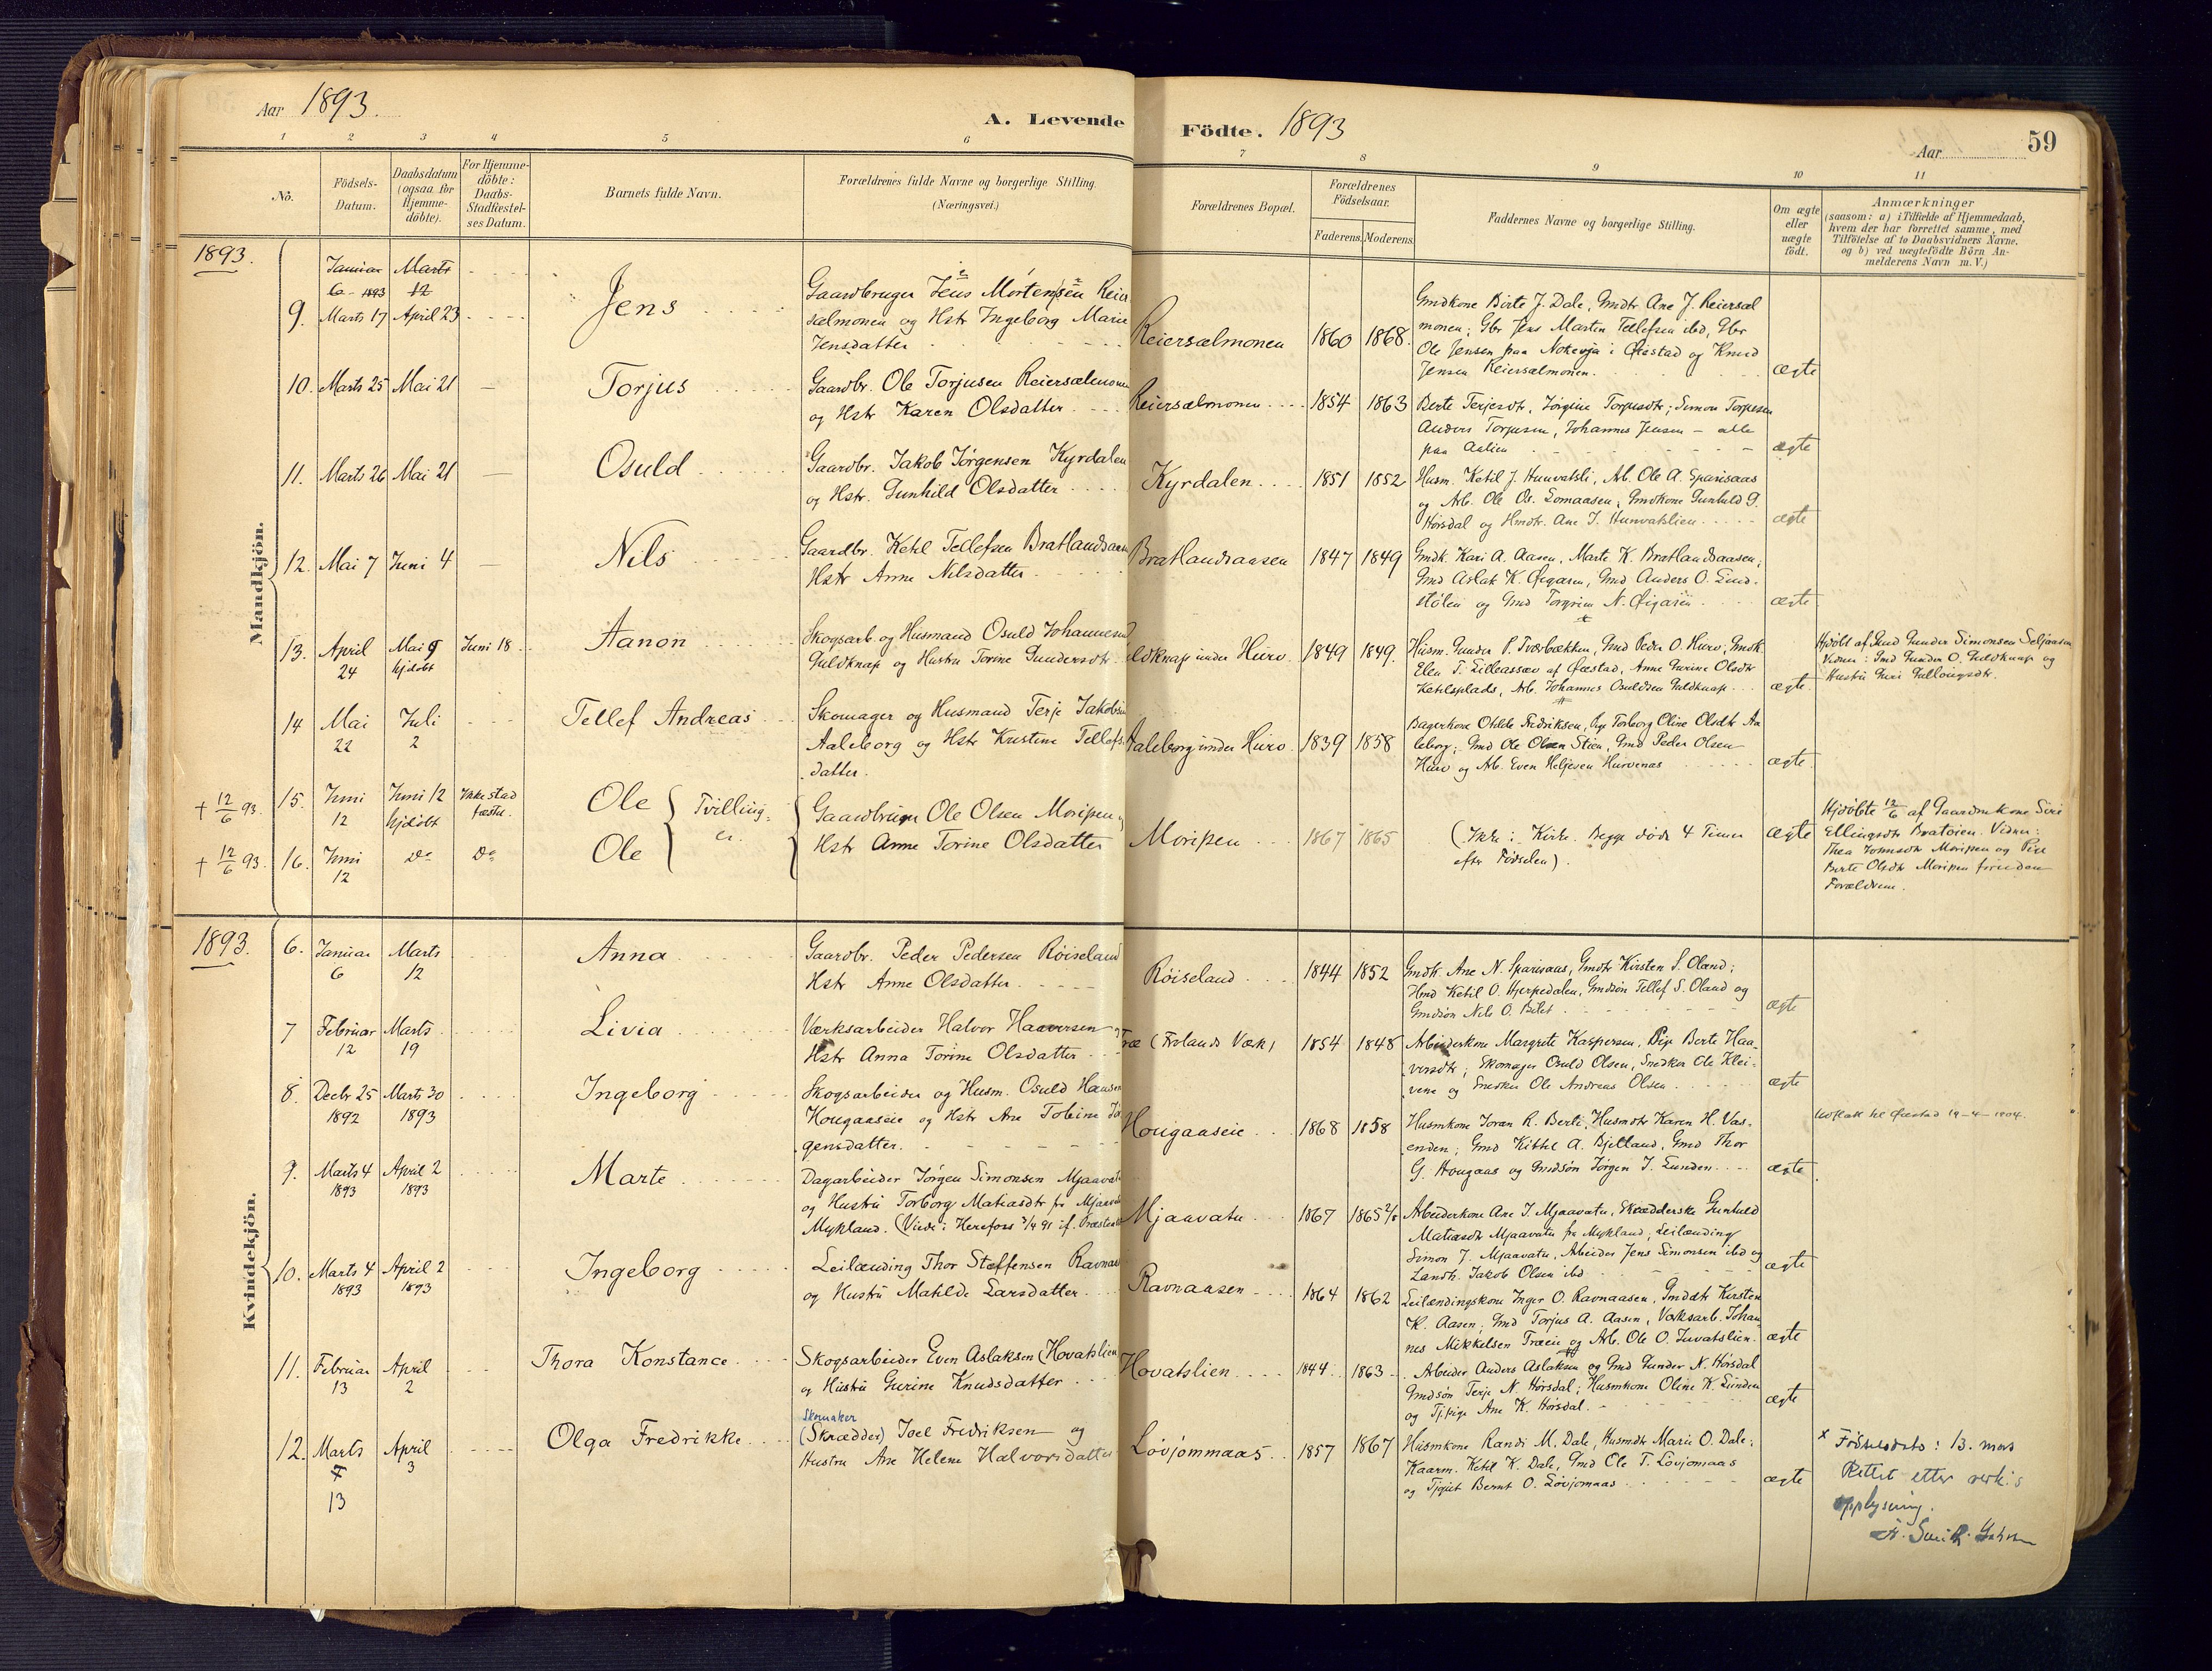 Aar 1893.
A. Levende Födte. 1893
Aar 59
1 2 3 4 5 6 7 8 9 10 11
No.
Födsels-Datum.
Daabsdatum (ogsaa for Hjemme-döbte).
For Hjemme-döbte: Daabs-Stadfæstel-ses Datum.
Barnets fulde Navn.
Forældrenes fulde Navne og borgerlige Stilling.
(Næringsvei.)
Forældrenes Bopæl.
Forældrenes Födselsaar.
Faderens. Moderens.
Faddernes Navne og borgerlige Stilling.
Om ægte eller uægte födt.
Anmærkninger
(saasom: a) i Tilfælde af Hjemmedaab,
hvem der har forrettet samme, med
Tilföielse af to Daabsvidners Navne.
og b) ved uægtefödte Börn An-
melderens Navn m. V.)
1893.
Mandkjön.
Januar Marts
6 - 1893 12
9. Marts 17 April 23 Jens
Gaardbruger Jens Mortensen Reier
sælmonen og Hstr Ingeborg Marie
Jensdatter
Reiersælmonen 1860 1868.
Gmdkone Birte J. Dale, Gmdtr Ane J. Reiersæl
monen; Gbr Jens Martin Tellefsen ibd, Gbr
Ole Jensen paa Nokevja i Øiestad og Knud
Jensen Reiersælmonen. ægte
10. Marts 25 Mai 21 — Torjus
Gaardbr. Ole Torjusen Reiersælmonen
og Hstr Karen Olsdatter
Reiersælmonen 1854 1863
Berte Terjesdtr, Jørgine Torjusdtr; Simon Torjusen
Anders Torjusen, Johannes Jensen — alle
paa Aalien ægte
11. Marts 26 Mai 21 — Osuld
Gaardbr. Jakob Jørgensen Kyrdalen
og Hstr. Gunhild Olsdatter
Kyrdalen 1851 1852
Husm. Ketil J. Hunvatsli, Arb. Ole A. Sparisaas
og Arb. Ole Os. Lomaasen; Gmdkone Gunhild G.
Hørsdal og Hmdtr. Ane J. Hunvatslien ægte
12. Mai 7 Juni 4 — Nils
Gaardbr. Ketil Tellefsen Bratlandsaasen
Hstr Anne Nilsdatter
Bratlandsaasen 1847 1849
Gmdk. Kari A. Aasen, Marte K. Bratlandsaasen;
Gmd Aslak K. Øigasen, Gmd Anders O. Lind-
stölen og Gmd Torgrim N. Øigasen ægte
13. April 24 Mai 9 hjdöbt Juni 18 Aanon
Skogsarb. og Husmand Osuld Johannesen
Guldknap og Hustru Torine Gundersdtr
Guldknap under Hurv. 1849 1849.
Husm. Gunder P. Tværbækken, Gmd Peder O. Hurv, Gmdk
Elen T. Lilleassæv af Øiestad, Anne Gurine Olsdtr
Ketilsplads, Arb. Johannes Osuldsen Guldknap ægte.
Hjdöbt af Gmd Gunder Simonsen Seljaasen
Vidner: Gmd Gunder O. Guldknap og
Hustru Guri Gullongsdtr.
14 Mai 22 Juli 2 Tellef Andreas
Skomager og Husmand Terje Jakobsen
Aaleborg og Hstr Kristine Tellefs-
datter.
Aaleborg under Hurv. 1839 1858
Bagerkone Otilde Fredriksen, Pige Torborg Oline Olsdtr Aa
leborg; Gmd Ole Olsen Stien, Gmd Peder Olsen
Hurv og Arb. Even Heljesen Hurvenæs ægte.
† 12/6 93. 15. Juni 12 Juni 12 hjdöbt Ikke stad fæstet. Ole
† 12/6 93. 16. Juni 12 Do Do Ole
Tvilling-er
Gaardbruger Ole Olsen Moripen og
Hstr Anne Torine Olsdatter
Moripen 1867 1865
(Ikke i Kirke. Begge døde 4 Timer
efter Fødselen). ægte
Hjdöbte 12/6 af Gaardmkone Siri
Ellingsdtr Bratoien. Vidner:
Thea Johnsdtr Moripen og Pige
Berte Olsdtr Moripen foruden
Forældrene.
1893.
Kvindekjön.
6. Januar 6 Marts 12 Anna
Gaardbr. Peder Pedersen Røiseland
Hstr Anne Olsdatter.
Røiseland 1844 1852
Gmdk. Ane N. Sparisaas, Gmdtr Kirsten S. Oland;
Hmd Ketil O. Hjerpedalen, Gmdsøn Tellef S. Oland og
Gmdsøn Nils O. Bilet ægte
7 Februar 12 Marts 19 Livia
Værksarbeider Halvor Haaversen og
Hstr Anna Torine Olsdatter
Træ (Frolands Værk) 1854 1848
Arbeiderkone Margrete Kaspersen, Pige Berte Haa-
versdtr; Skomager Osuld Olsen, Snedker Ole Klei-
vene og Snedker Ole Andreas Olsen ægte
8. Decbr 25 1892 Marts 30 1893 Ingeborg
Skogsarbeider og Husm. Osuld Hansen
Hougaaseie og Hstr Ane Tobine Jør
gensdatter.
Hougaaseie 1868 1858
Husmkone Joran R. Berli, Husmdtr Karen H. Vas-
enden; Gmd Kittil A. Bjelland, Gmd Thor
G. Hougaas og Gmdsøn Jørgen J. Lunden ægte.
Udflytt til Øiestad 19-4-1904.
9. Marts 4 1893 April 2 1893 Marte
Dagarbeider Jørgen Simonsen Mjaavatn
og Hustru Torborg Matiasdtr fra Mjaavatn
Mykland. (Viede i Herefoss 3/4 91 if. Præsteatt
Mjaavatn 1867 1865 2/8
Arbeiderkone Ane J. Mjaavatn, Skrædderske Gunhild
Matiasdtr Mjaavatn fra Mykland; Leilænding
Simon J. Mjaavatn, Arbeider Jens Simonsen ibd og
Landh. Jakob Olsen ibd ægte
10. Marts 4 1893 April 2 1893 Ingeborg
Leilænding Thor Steffensen Ravnaas
og Hustru Matilde Larsdatter
Ravnaasen 1864 1862
Leilændingskone Inger O. Ravnaasen, Gmddtr Kirsten
K. Aasen; Gmd Torjus A. Aasen, Værksarb. Johan-
nes Mikkelsen Træeie og Arb. Ole O. Huvatslien ægte
11. Februar 13 April 2 Thora Konstance
Skogsarbeider Even Aslaksen Hovatslien
og Hustru Gurine Knudsdatter
Hovatslien 1844 1863
Arbeider Anders Aslaksen og Gmd Gunder N. Hørsdal
Gmdsøn Terje N. Hørsdal; Husmkone Oline K. Lunden
og Tj.pige Ane K. Hørsdal. ægte
12. Marts 7 13 April 3 Olga Fredrikke
Skomaker
(Skrædder) Joel Fredriksen og
Hustru Ane Helene Halvorsdatter
Løvjommaas 1857 1867
Husmkone Randi M. Dale, Husmdtr Marie O. Dale;
Kaarm. Ketil K. Dale, Gmd Ole T. Løvjomaas
og Tjgut Bernt O. Løvjomaas ægte
x Fødselsdato: 13. mars
Rettet etter
opplysning.